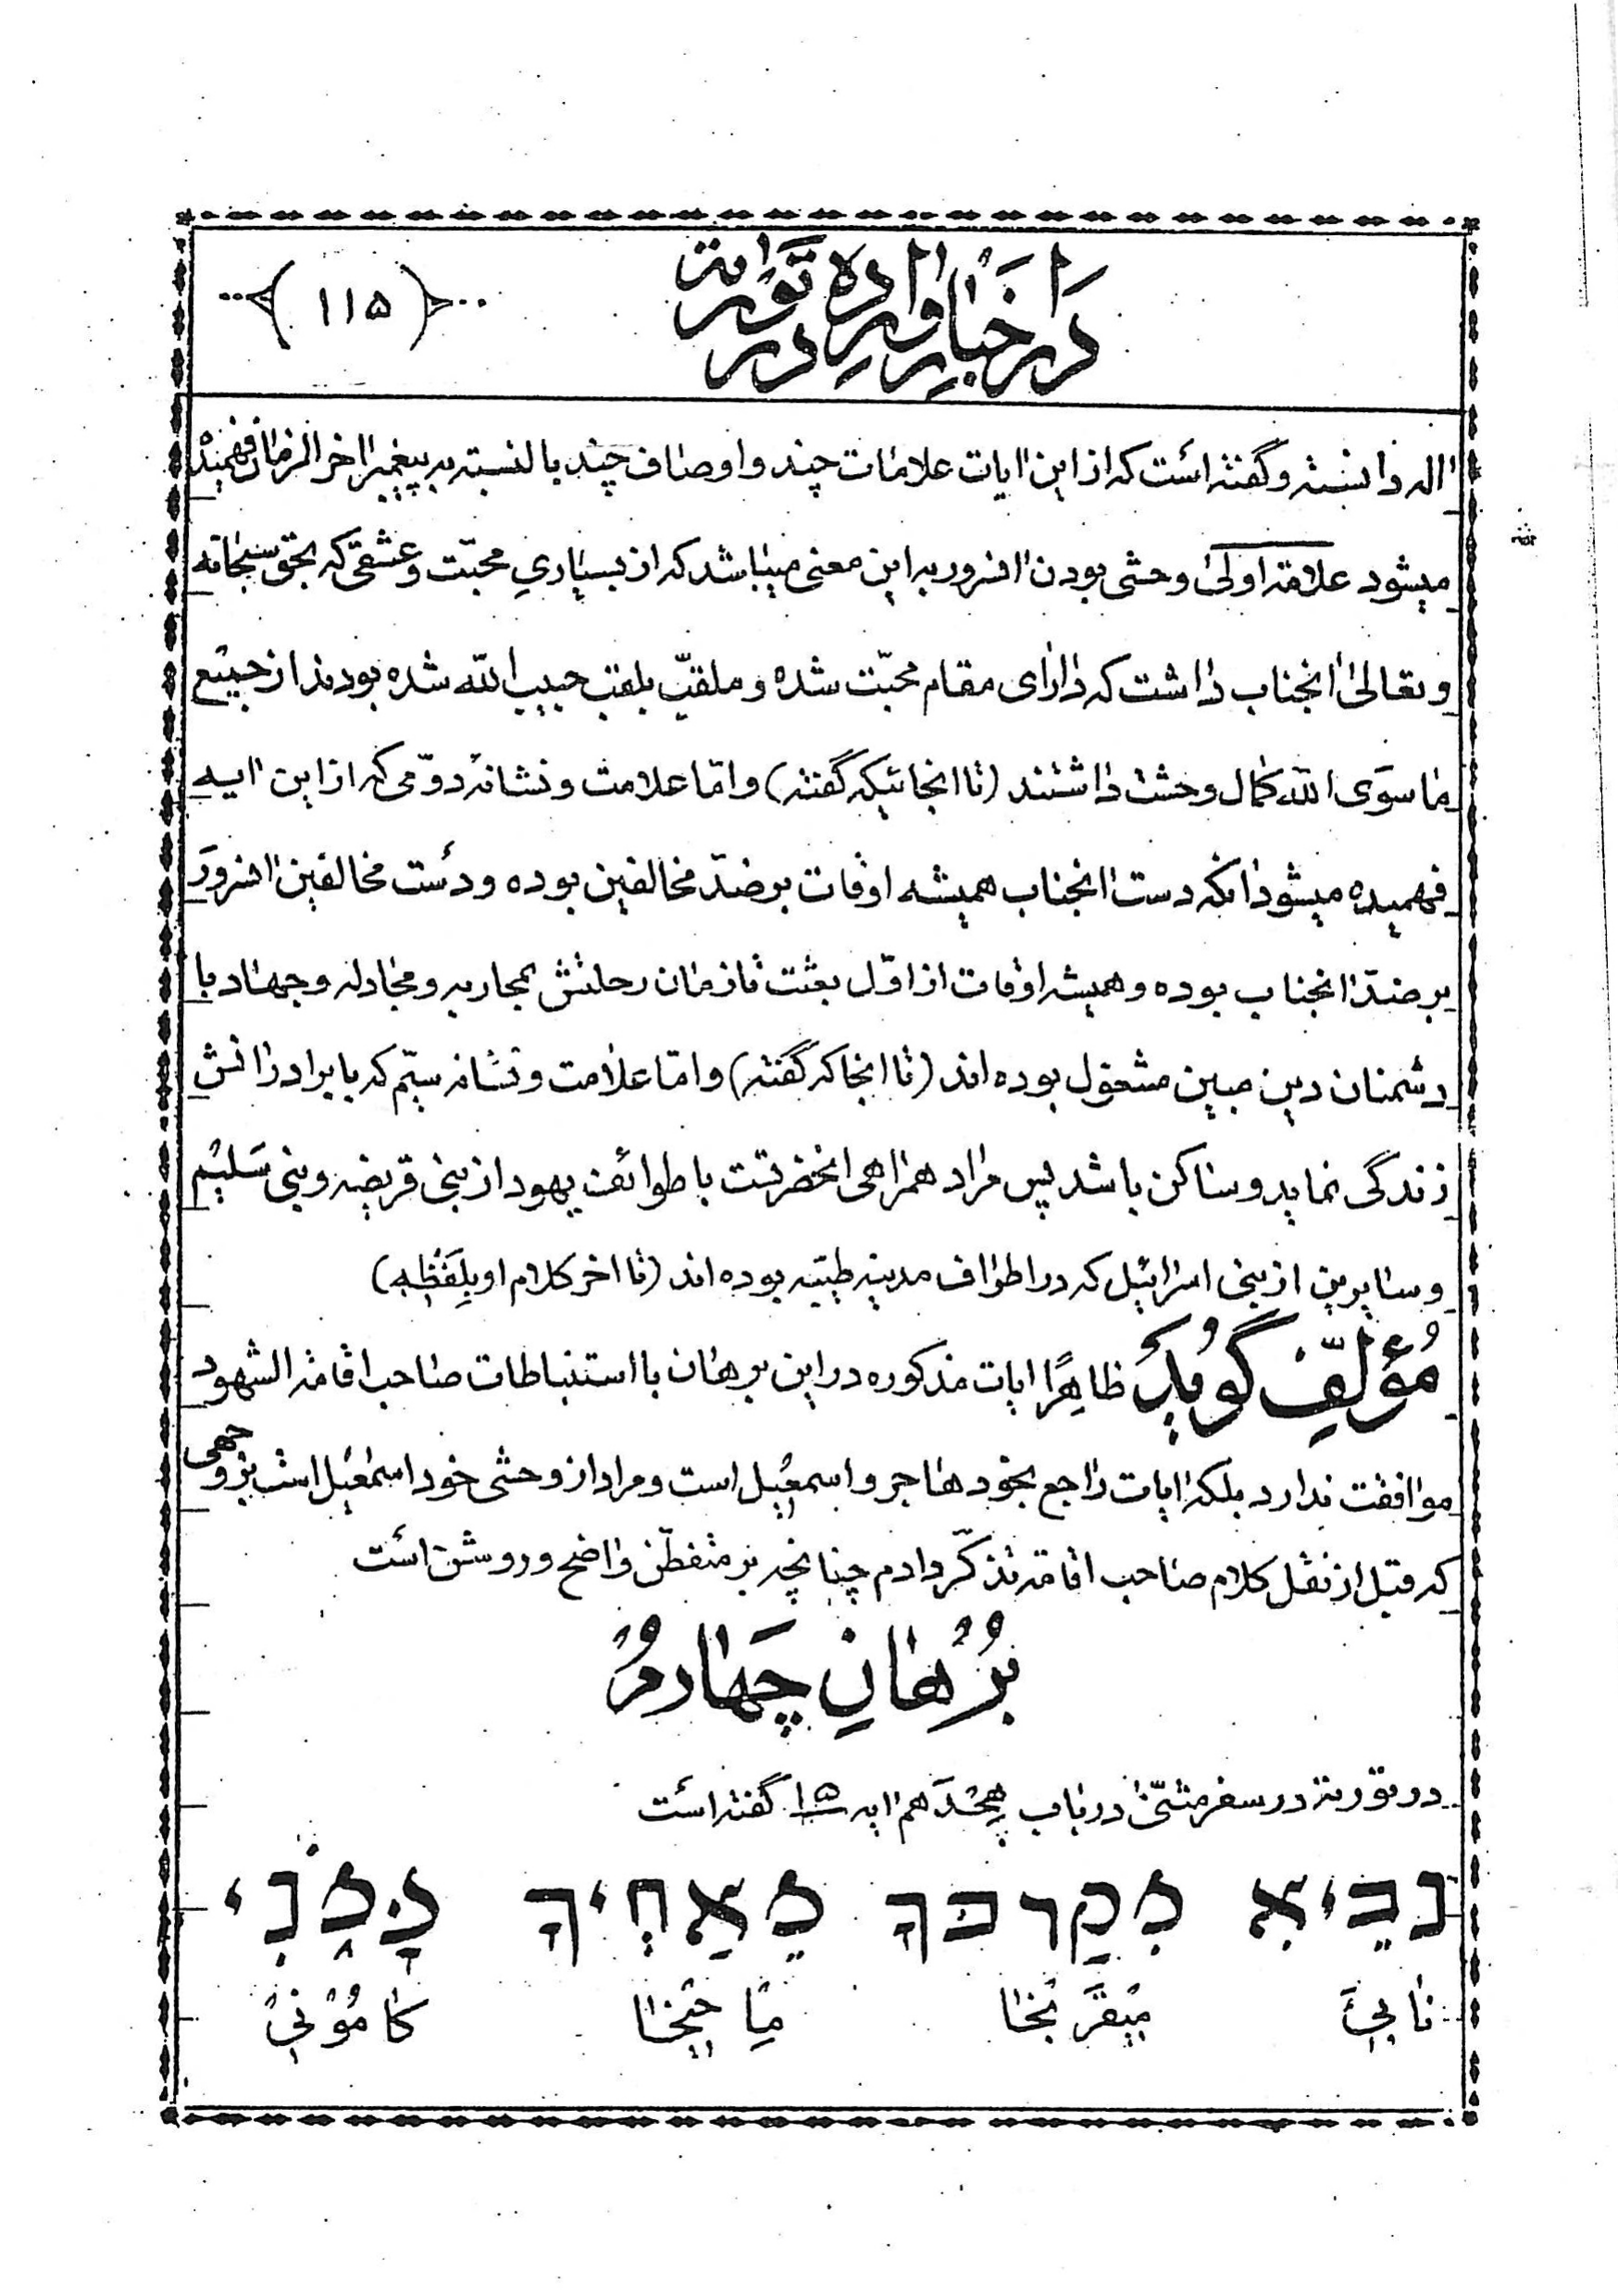 در اخبار وارده در توراة
﴿۱۱۵﴾
اله دانسته و گفته است که از این ایات علامات چند و اوصاف چند بالنسبته به پیغمبر اخر الزمان فهمیده
میشود علامة اولی وحشی بودن انسرور به این معنی میباشد که از بسیاریِ محبّت و عشقی که بحق سبحانه
و تعالی انجناب داشت که دارای مقام محبّت شده و ملقّب بلقب حبیب الله شده بودند از جمیع
ما سوَی الله کمال وحشت داشتند (تا انجائیکه گفته) و امّا علامت و نشانهٔ دوّمی که از این ایه
فهمیده میشود انکه دست انجناب همیشه اوقات بر ضدّ مخالفین بوده و دست مخالفین انسرور
بر ضدّ انجناب بوده و همیشه اوقات از اوّل بعثت تا زمان رحلتش بمحاربه و مجادله و جهاد با
دشمنان دین مبین مشغول بوده اند (تا انجا که گفته) و امّا علامت و نشانه سیّم که با برادرانش
زندگی نماید و ساکن باشد پس مراد همراهی انحضرتست با طوائف یهود از بنی قریضه و بنی سَلیم
و سایرین از بنی اسرائیل که در اطراف مدینهٔ طیّبه بوده اند (تا اخر کلام او بِلَفْظِهِ)
مُؤلّفِ گُویَد ظاهِرًا ایات مذکوره در این برهان با استنباطات صاحب اقامة الشهود
موافقت ندارد بلکه ایات راجع بخود هاجر و اسمعیل است و مراد از وحشی خود اسمعیل است بر وجهی
که قبل از نقل کلام صاحب اقامة تذکّر دادم چنانچه بر متفطّن واضح و روشن است
بُرْهانِ چَهارمُ
در توریة در سفر مثنّی در باب هِجْدَهم ایه ۱۵ گفته است
נָבִיא מִקִרבְּךָ מֵאַחֶיךָ כָּמֹנִי
نابیَ مِیقَّرِبْخا مِاحِیْخا کامُوْنیْ